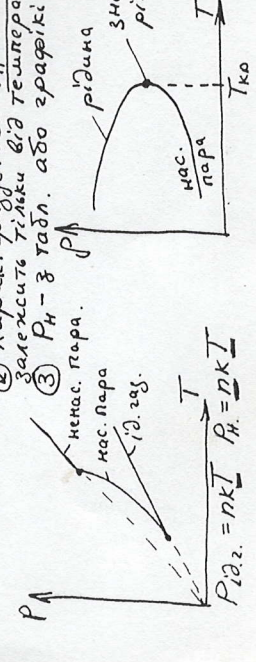 залежить тільки від темпера
③ Рн - з табл. або графікі
P
ненас. пара.
нас. пара
ід. газ.
T
Pід.г. = nkT Pн. = nkT
ρ
рідина
нас.
пара
Tкр
T